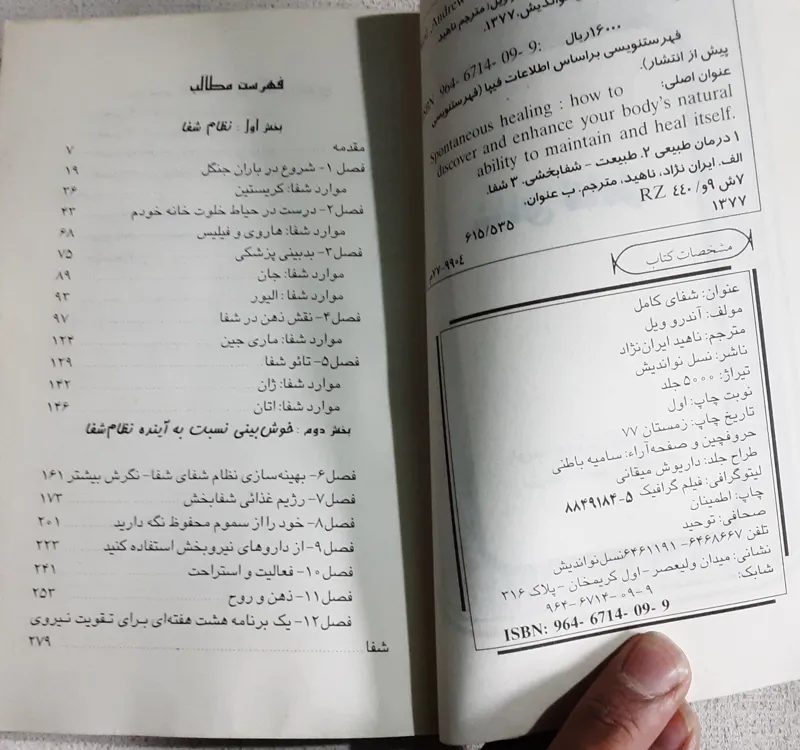 Andrew
مترجم ناهید
نواندیش، ۱۳۷۷.
۱۶۰۰۰ریال :964- 6714- 09- 9
فهرستنویسی براساس اطلاعات فیپا (فهرستنویسی
پیش از انتشار).
عنوان اصلی:
Spontaneous healing : how to
discover and enhance your body's natural
ability to maintain and heal itself.
۱ درمان طبیعی ۲. طبیعت - شفابخشی. ۳ شفا.
الف. ایران نژاد، ناهید، مترجم. ب عنوان.
۷ش ۹و/ RZ ۴۴۰
۱۳۷۷
۶۱۵/۵۳۵
۷۷-۹۹۰۴م
مشخصات کتاب
عنوان: شفای کامل
مولف: آندرو ویل
مترجم: ناهید ایران‌نژاد
ناشر: نسل نواندیش
تیراژ: ۵۰۰۰ جلد
نوبت چاپ: اول
تاریخ چاپ: زمستان ۷۷
حروفچین و صفحه‌آراء: سامیه باطنی
طراح جلد: داریوش میقانی
لیتوگرافی: فیلم گرافیک ۵-۸۸۴۹۱۸۴
چاپ: اطمینان
صحافی: توحید
تلفن ۶۴۶۸۶۶۷- ۶۴۶۱۱۹۱نسل نواندیش
نشانی: میدان ولیعصر- اول کریمخان - پلاک ۳۱۶
شابک: ۹-۰۹-۶۷۱۴-۹۶۴
ISBN: 964- 6714- 09- 9
فهرست مطالب
بخش اول : نظام شفا
مقدمه ۷
فصل ۱- شروع در باران جنگل ۱۹
موارد شفا: کریستین ۳۶
فصل ۲- درست در حیاط خلوت خانه خودم ۴۳
موارد شفا: هاروی و فیلیس ۶۸
فصل ۳- بدبینی پزشکی ۷۵
موارد شفا: جان ۸۹
موارد شفا: الیور ۹۳
فصل ۴- نقش ذهن در شفا ۹۷
موارد شفا: ماری جین ۱۲۴
فصل ۵- تائو شفا ۱۲۹
موارد شفا: ژان ۱۴۲
موارد شفا: اتان ۱۴۶
بخش دوم : خوش‌بینی نسبت به آینده نظام شفا
فصل ۶- بهینه‌سازی نظام شفای شفا- نگرش بیشتر ۱۶۱
فصل ۷- رژیم غذائی شفابخش ۱۷۳
فصل ۸- خود را از سموم محفوظ نگه دارید ۲۰۱
فصل ۹- از داروهای نیروبخش استفاده کنید ۲۲۳
فصل ۱۰- فعالیت و استراحت ۲۴۱
فصل ۱۱- ذهن و روح ۲۵۳
فصل ۱۲- یک برنامه هشت هفته‌ای برای تقویت نیروی
شفا ۲۷۹